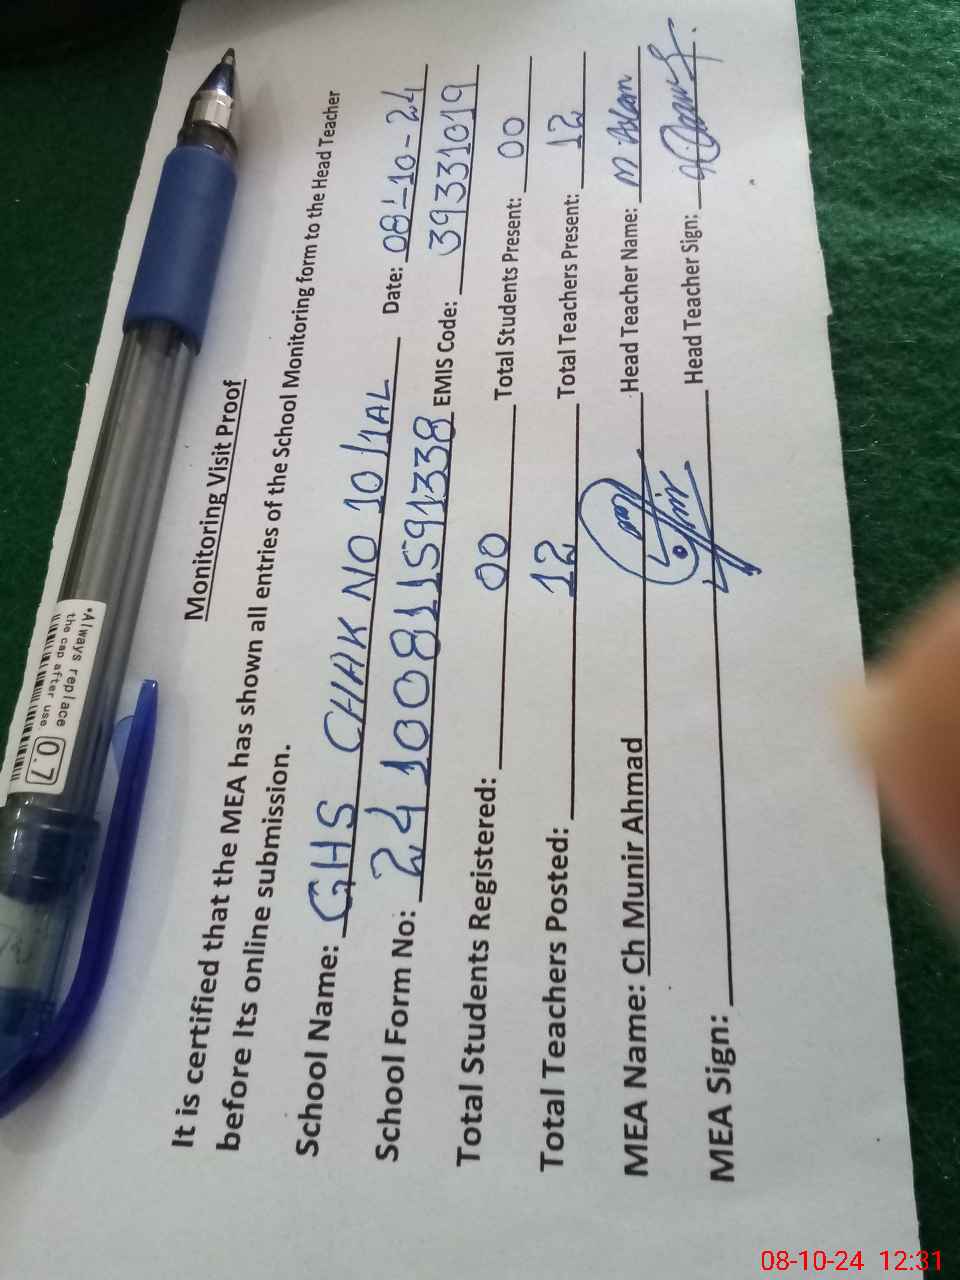 Monitoring Visit Proof
It is certified that the MEA has shown all entries of the School Monitoring form to the Head Teacher
before Its online submission.
School Name: GHS CHAK NO 10/1AL Date: 08-10-24
School Form No: 24100811591338 EMIS Code: 39331019
Total Students Registered: 00 Total Students Present: 00
Total Teachers Posted: 12 Total Teachers Present: 12
MEA Name: Ch Munir Ahmad Head Teacher Name: M Aslam
MEA Sign: Head Teacher Sign:
*Always replace
the cap after use
0.7
08-10-24 12:31